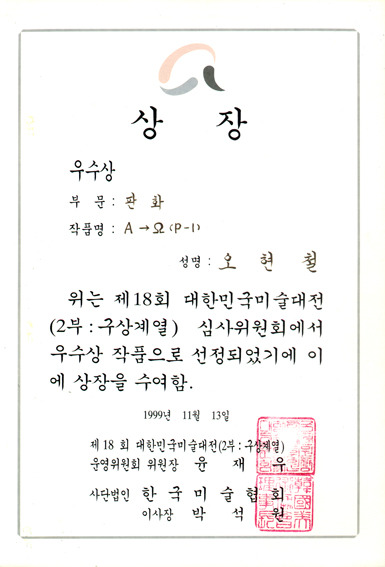 상 장
우수상
부 문 : 판 화
작품명 : A → Ω (P-1)
성명 : 오 현 철
위는 제18회 대한민국미술대전
(2부 : 구상계열) 심사위원회에서
우수상 작품으로 선정되었기에 이
에 상장을 수여함.
1999년 11월 13일
제 18 회 대한민국미술대전(2부 : 구상계열)
운영위원회 위원장 윤 재 우
사단법인 한 국 미 술 협 회
이사장 박 석 원